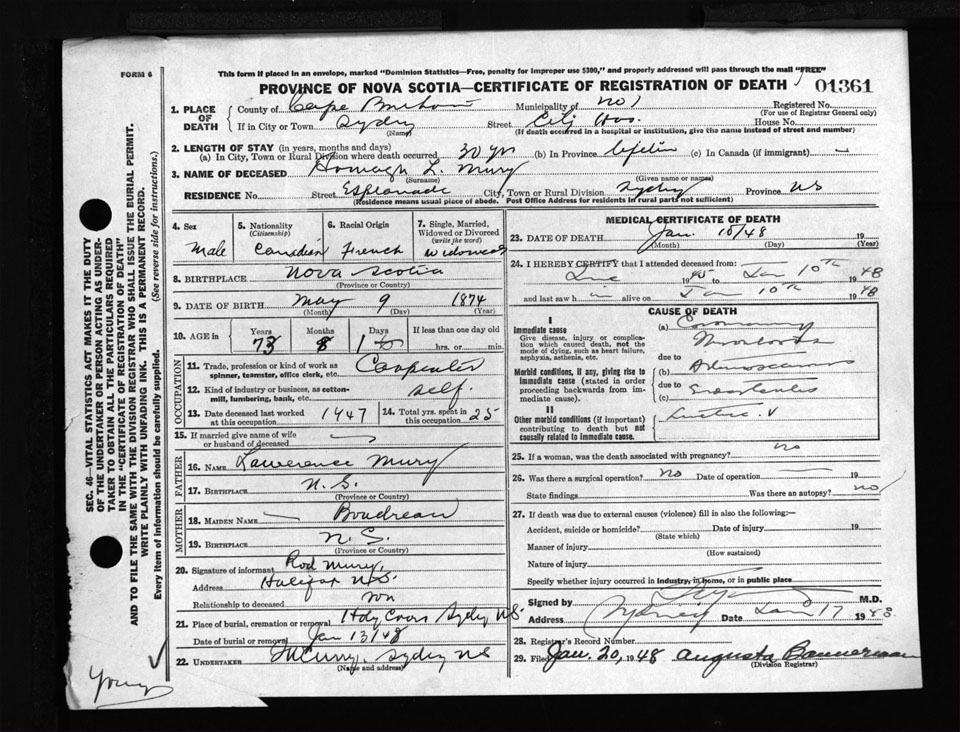 FORM 6
This form if placed in an envelope, marked "Dominion Statistics—Free, penalty for improper use $300," and properly addressed will pass through the mail "FREE"
PROVINCE OF NOVA SCOTIA—CERTIFICATE OF REGISTRATION OF DEATH
01361
1. PLACE OF DEATH
County of Cape Breton Municipality of No 1 Registered No.
(For use of Registrar General only)
If in City or Town Sydney Street City Hos. House No.
(Name) (If death occurred in a hospital or institution, give the name instead of street and number)
2. LENGTH OF STAY (in years, months and days)
(a) In City, Town or Rural Division where death occurred 30 yrs (b) In Province lifetime (c) In Canada (if immigrant) —
3. NAME OF DECEASED L. Mury
(Surname) (Given name or names)
RESIDENCE No. Street Esplanade City, Town or Rural Division Sydney Province NS
(Residence means usual place of abode. Post Office Address for residents in rural parts not sufficient)
4. Sex
Male
5. Nationality
(Citizenship)
Canadian
6. Racial Origin
French
7. Single, Married, Widowed or Divorced
(write the word)
Widowed
8. BIRTHPLACE Nova Scotia
(Province or Country)
9. DATE OF BIRTH May 9 1874
(Month) (Day) (Year)
10. AGE in
Years Months Days If less than one day old
73 8 1 hrs. or min.
OCCUPATION
11. Trade, profession or kind of work as spinner, teamster, office clerk, etc. Carpenter
12. Kind of industry or business, as cotton-mill, lumbering, bank, etc. self.
13. Date deceased last worked at this occupation 1947
14. Total yrs. spent in this occupation 25
15. If married give name of wife or husband of deceased —
FATHER
16. NAME Lawerence Mury
17. BIRTHPLACE N.S.
(Province or Country)
MOTHER
18. MAIDEN NAME — Boudreau
19. BIRTHPLACE N.S.
(Province or Country)
20. Signature of informant Rod Mury,
Address Halifax N.S.
Relationship to deceased son
21. Place of burial, cremation or removal Holy Cross Sydney NS
Date of burial or removal Jan 13/48
22. UNDERTAKER Sydney NS
(Name and address)
MEDICAL CERTIFICATE OF DEATH
23. DATE OF DEATH Jan. 10/48 19
(Month) (Day) (Year)
24. I HEREBY CERTIFY that I attended deceased from:
1945 to Jan 10th 1948
and last saw h im alive on Jan 10th 1948
CAUSE OF DEATH
I
Immediate cause
Give disease, injury or complication which caused death, not the mode of dying, such as heart failure, asphyxia, asthenia, etc.
(a) Coronary Thrombosis
due to
Morbid conditions, if any, giving rise to immediate cause (stated in order proceeding backwards from immediate cause).
(b)
due to
(c)
II
Other morbid conditions (if important) contributing to death but not causally related to immediate cause.
25. If a woman, was the death associated with pregnancy? no
26. Was there a surgical operation? no Date of operation — 19
State findings Was there an autopsy? no
27. If death was due to external causes (violence) fill in also the following:—
Accident, suicide or homicide? Date of injury 19
(State which)
Manner of injury
(How sustained)
Nature of injury
Specify whether injury occurred in industry, in home, or in public place
Signed by M.D.
Address Sydney Date Jan 17 1948
28. Registrar's Record Number
29. Filed Jan. 20, 1948 Augusta Bannerman
(Division Registrar)
SEC. 46—VITAL STATISTICS ACT MAKES IT THE DUTY
OF THE UNDERTAKER OR PERSON ACTING AS UNDERTAKER TO OBTAIN ALL THE PARTICULARS REQUIRED
IN THE "CERTIFICATE OF REGISTRATION OF DEATH"
AND TO FILE THE SAME WITH THE DIVISION REGISTRAR WHO SHALL ISSUE THE BURIAL PERMIT.
WRITE PLAINLY WITH UNFADING INK. THIS IS A PERMANENT RECORD.
Every item of information should be carefully supplied. (See reverse side for instructions.)